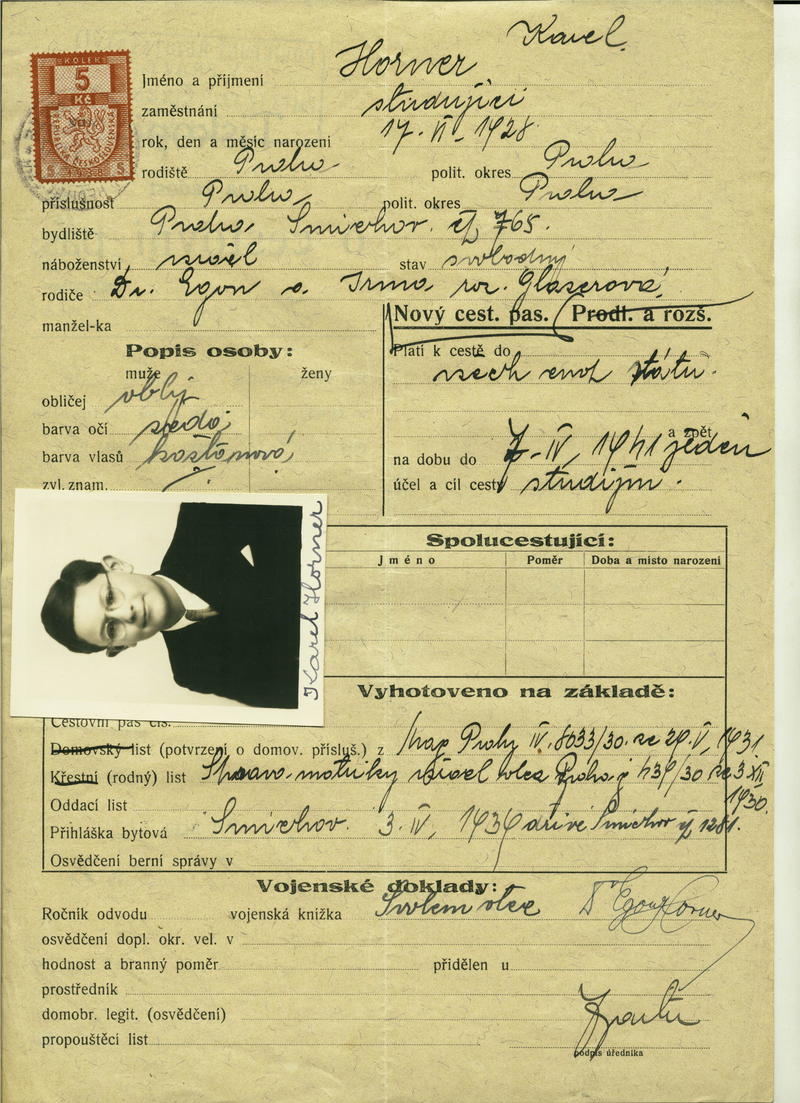 Karel
KOLEK
5
Kč
REPUBLIKA ČESKOSLOVENSKÁ
5 1938 5
Jméno a příjmení Horner
zaměstnání studující
rok, den a měsíc narození 17. VI. 1928.
rodiště Praha polit. okres Praha
příslušnost Praha polit. okres Praha
bydliště Praha Smíchov. čp 765.
náboženství israel stav svobodný
rodiče Dr. Egon a Irma roz. Glaserová
manžel-ka
Nový cest. pas. (Prodl. a rozš.
Popis osoby:
muže ženy
Platí k cestě do
všech států.
obličej oblý
barva očí šedá
barva vlasů kaštanová
zvl. znam.
a zpět
na dobu do 7. IV. 1941 jeden
účel a cíl cesty studijní.
Karel Horner
Spolucestující:
Jméno Poměr Doba a místo narození
Vyhotoveno na základě:
Cestovní pas čís.
Domovský list (potvrzení o domov. přísluš.) z Mag Prahy IV. 8033/30. ze 29. V. 1931.
Křestní (rodný) list matriky israel obce Praha j 439/30 ze 3 XII
1930.
Oddací list
Přihláška bytová Smíchov. 3. IV. 1939 dříve Smíchov čp 1281.
Osvědčení berní správy v
Vojenské doklady:
Ročník odvodu vojenská knižka Svolení otce Dr Egon Horner
osvědčení dopl. okr. vel. v
hodnost a branný poměr přidělen u
prostředník
domobr. legit. (osvědčení)
propouštěcí list
podpis úředníka